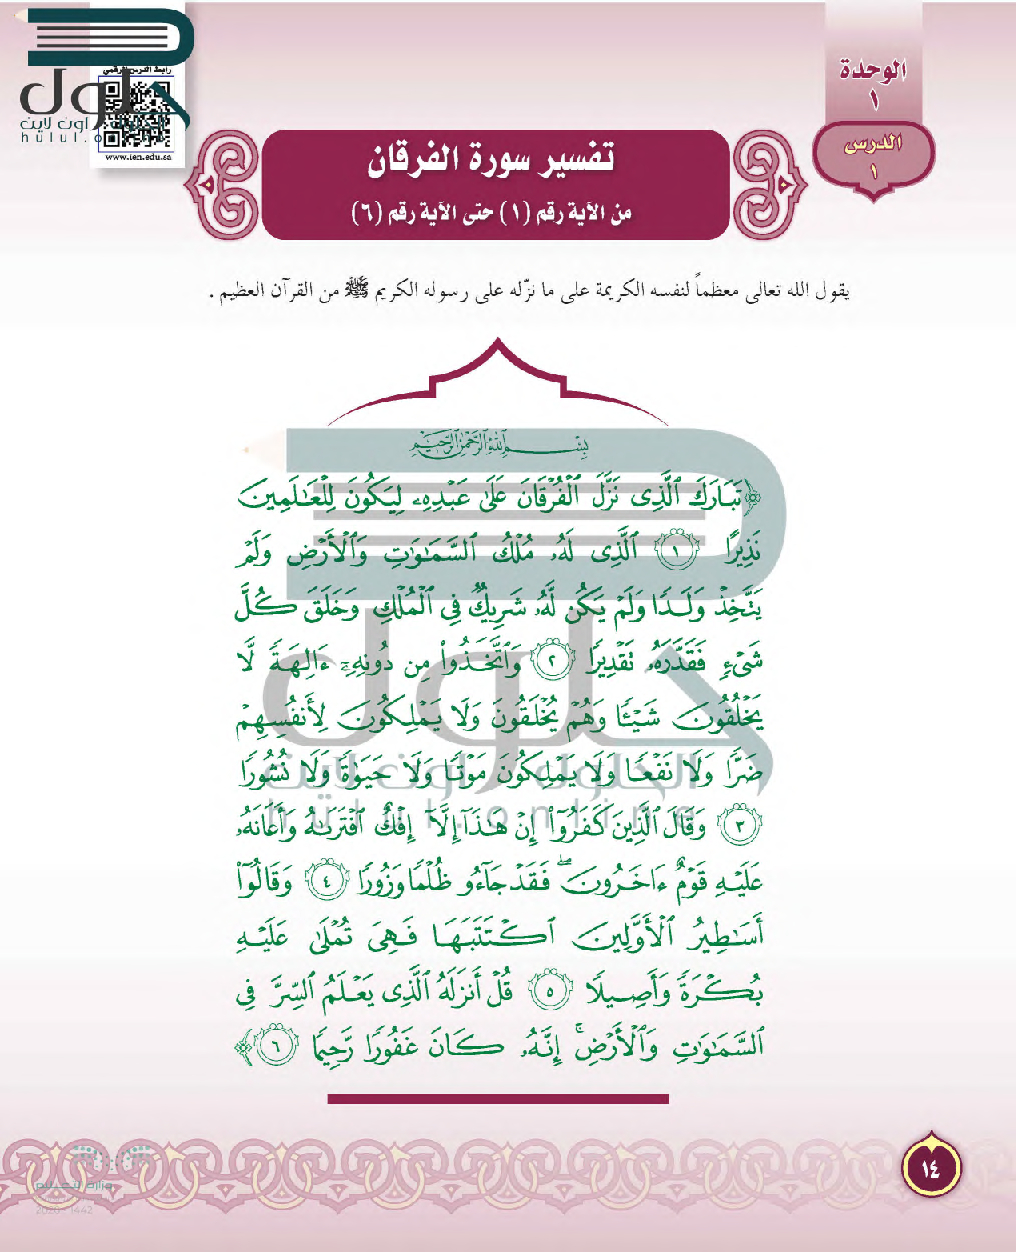 الوحدة
١
الدرس
١
رابط الدرس الرقمي
www.ien.edu.sa
حلول
اون لاين
تفسير سورة الفرقان
من الآية رقم (١) حتى الآية رقم (٦)
يقول الله تعالى معظماً لنفسه الكريمة على ما نزّله على رسوله الكريم ﷺ من القرآن العظيم .
بِسْمِ اللَّهِ الرَّحْمَٰنِ الرَّحِيمِ
﴿تَبَارَكَ ٱلَّذِى نَزَّلَ ٱلْفُرْقَانَ عَلَىٰ عَبْدِهِۦ لِيَكُونَ لِلْعَـٰلَمِينَ
نَذِيرًا ١ ٱلَّذِى لَهُۥ مُلْكُ ٱلسَّمَـٰوَٰتِ وَٱلْأَرْضِ وَلَمْ
يَتَّخِذْ وَلَـدًا وَلَمْ يَكُن لَّهُۥ شَرِيكٌ فِى ٱلْمُلْكِ وَخَلَقَ كُلَّ
شَىْءٍ فَقَدَّرَهُۥ تَقْدِيرًا ٢ وَٱتَّخَذُوا۟ مِن دُونِهِۦٓ ءَالِهَةً لَّا
يَخْلُقُونَ شَيْـًٔا وَهُمْ يُخْلَقُونَ وَلَا يَمْلِكُونَ لِأَنفُسِهِمْ
ضَرًّا وَلَا نَفْعًا وَلَا يَمْلِكُونَ مَوْتًا وَلَا حَيَوٰةً وَلَا نُشُورًا
٣ وَقَالَ ٱلَّذِينَ كَفَرُوٓا۟ إِنْ هَـٰذَآ إِلَّآ إِفْكٌ ٱفْتَرَىٰهُ وَأَعَانَهُۥ
عَلَيْهِ قَوْمٌ ءَاخَرُونَ ۖ فَقَدْ جَآءُو ظُلْمًا وَزُورًا ٤ وَقَالُوٓا۟
أَسَـٰطِيرُ ٱلْأَوَّلِينَ ٱكْتَتَبَهَا فَهِىَ تُمْلَىٰ عَلَيْهِ
بُكْرَةً وَأَصِيلًا ٥ قُلْ أَنزَلَهُ ٱلَّذِى يَعْلَمُ ٱلسِّرَّ فِى
ٱلسَّمَـٰوَٰتِ وَٱلْأَرْضِ ۚ إِنَّهُۥ كَانَ غَفُورًا رَّحِيمًا ٦﴾
حلول
الحلول اون لاين
hulul.online
١٤
وزارة التعليم
2020 - 1442